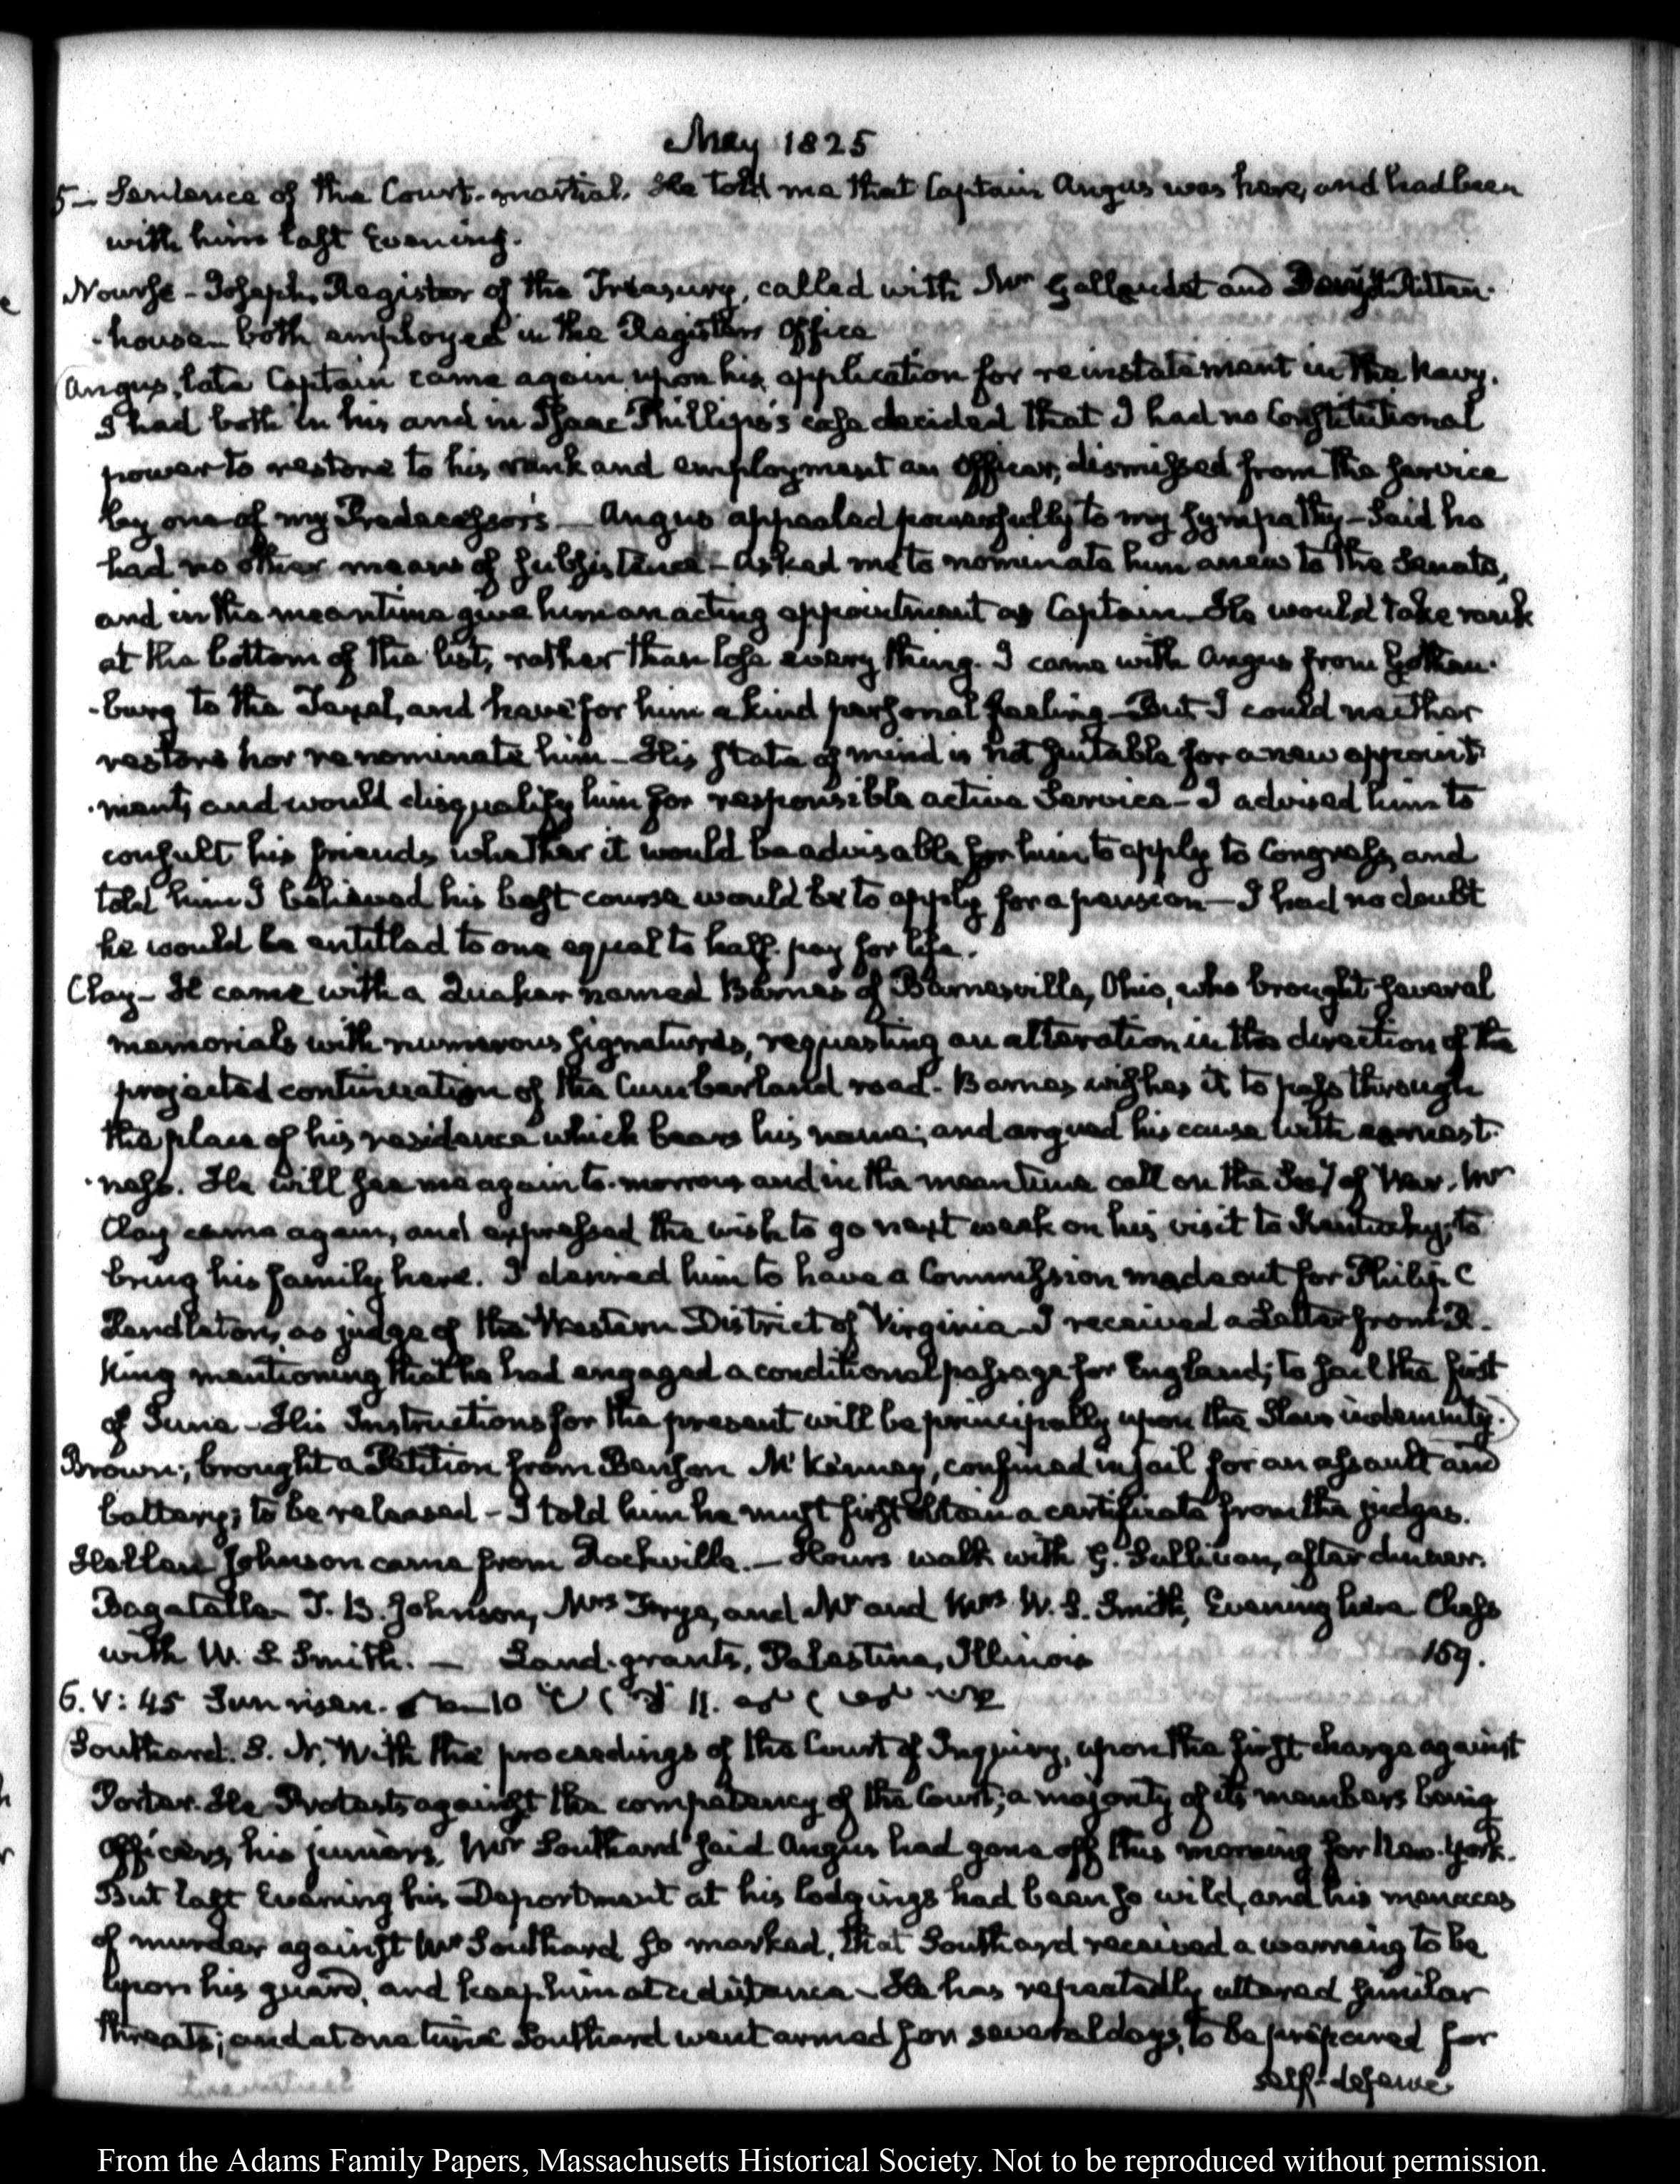 May 1825
5 — Sentence of the Court-martial. He told me that Captain Angus was here, and had been
with him last Evening.
Nourse — Joseph, Register of the Treasury, called with Mr Gallaudet and Ritten-
-house — both employed in the Registers Office
(Angus, late Captain came again upon his application for reinstatement in the Navy.
I had both in his and in Isaac Phillips's case decided that I had no Constitutional
power to restore to his rank and employment an Officer, dismissed from the service
by one of my Predecessors — Angus appealed powerfully to my sympathy — Said he
had no other means of subsistence — asked me to nominate him anew to the Senate,
and in the meantime give him an acting appointment as Captain — He would take rank
at the bottom of the list, rather than lose every thing. I came with Angus from Gothen-
-burg to the Texel, and have for him a kind personal feeling — But I could neither
restore nor renominate him — His state of mind is not suitable for a new appoint-
-ment, and would disqualify him for responsible active Service — I advised him to
consult his friends, whether it would be advisable for him to apply to Congress, and
told him I believed his best course would be to apply for a pension — I had no doubt
he would be entitled to one equal to half-pay for life.
Clay — H came with a Quaker named Barnes of Barnesville, Ohio, who brought several
memorials with numerous signatures, requesting an alteration in the direction of the
projected continuation of the Cumberland road. Barnes wishes it to pass through
the place of his residence which bears his name; and argued his cause with earnest-
-ness. He will see me again to-morrow and in the meantime call on the Secy of War. Mr
Clay came again, and expressed the wish to go next week on his visit to Kentucky, to
bring his family here. I desired him to have a Commission made out for Philip C
Pendleton, as judge of the Western District of Virginia — I received a Letter from R.
King mentioning that he had engaged a conditional passage for England; to sail the first
of June — His Instructions for the present will be principally upon the Slave indemnity.)
Brown; brought a Petition from Benson McKenney, confined in jail for an assault and
battery; to be released — I told him he must first obtain a certificate from the judges.
Hellen Johnson came from Rockville. — Hours walk with G. Sullivan, after dinner.
Bagatelle T. B. Johnson, Mrs Frye, and Mr and Mrs W. S. Smith, Evening here Chess
with W. S. Smith. — Land-grants, Palestine, Illinois 159.
6. V: 45 Sun risen.
(Southard. S. N. With the proceedings of the Court of Inquiry, upon the first charge against
Porter. He Protests against the competency of the Court; a majority of its members being
Officers, his juniors. Mr Southard said Angus had gone off this morning for New-York.
But last Evening his Deportment at his lodgings had been so wild, and his menaces
of murder against Mr Southard so marked, that Southard received a warning to be
upon his guard, and keep him at a distance — He has repeatedly uttered similar
threats; and at one time Southard went armed for several days, to be prepared for
self-defence
From the Adams Family Papers, Massachusetts Historical Society. Not to be reproduced without permission.